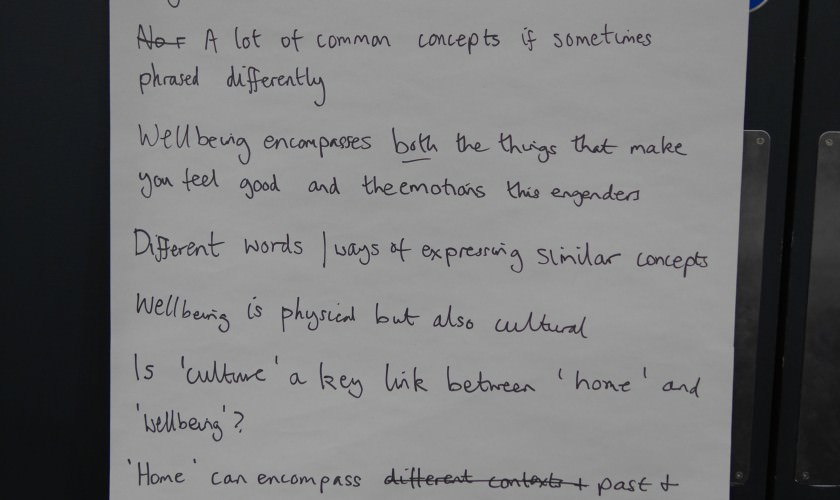 No r A lot of common concepts if sometimes
phrased differently
Wellbeing encompasses both the things that make
you feel good and the emotions this engenders
Different words / ways of expressing similar concepts
Wellbeing is physical but also cultural
Is 'culture' a key link between 'home' and
'wellbeing'?
'Home' can encompass different contexts + past +